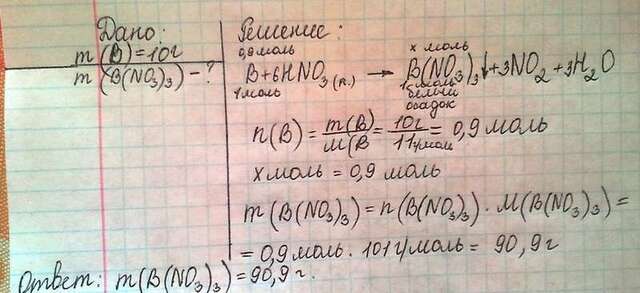 Дано:
m(B)=10г
m(B(NO₃)₃)-?
Решение:
0,9моль x моль
B+6HNO₃(к.) → B(NO₃)₃↓+3NO₂+3H₂O
1моль 1моль
белый
осадок
n(B)=m(B)/M(B=10г/11г/моль=0,9моль
xмоль=0,9 моль
m(B(NO₃)₃)=n(B(NO₃)₃)·M(B(NO₃)₃)=
=0,9моль·101г/моль=90,9г
Ответ: m(B(NO₃)₃)=90,9г.